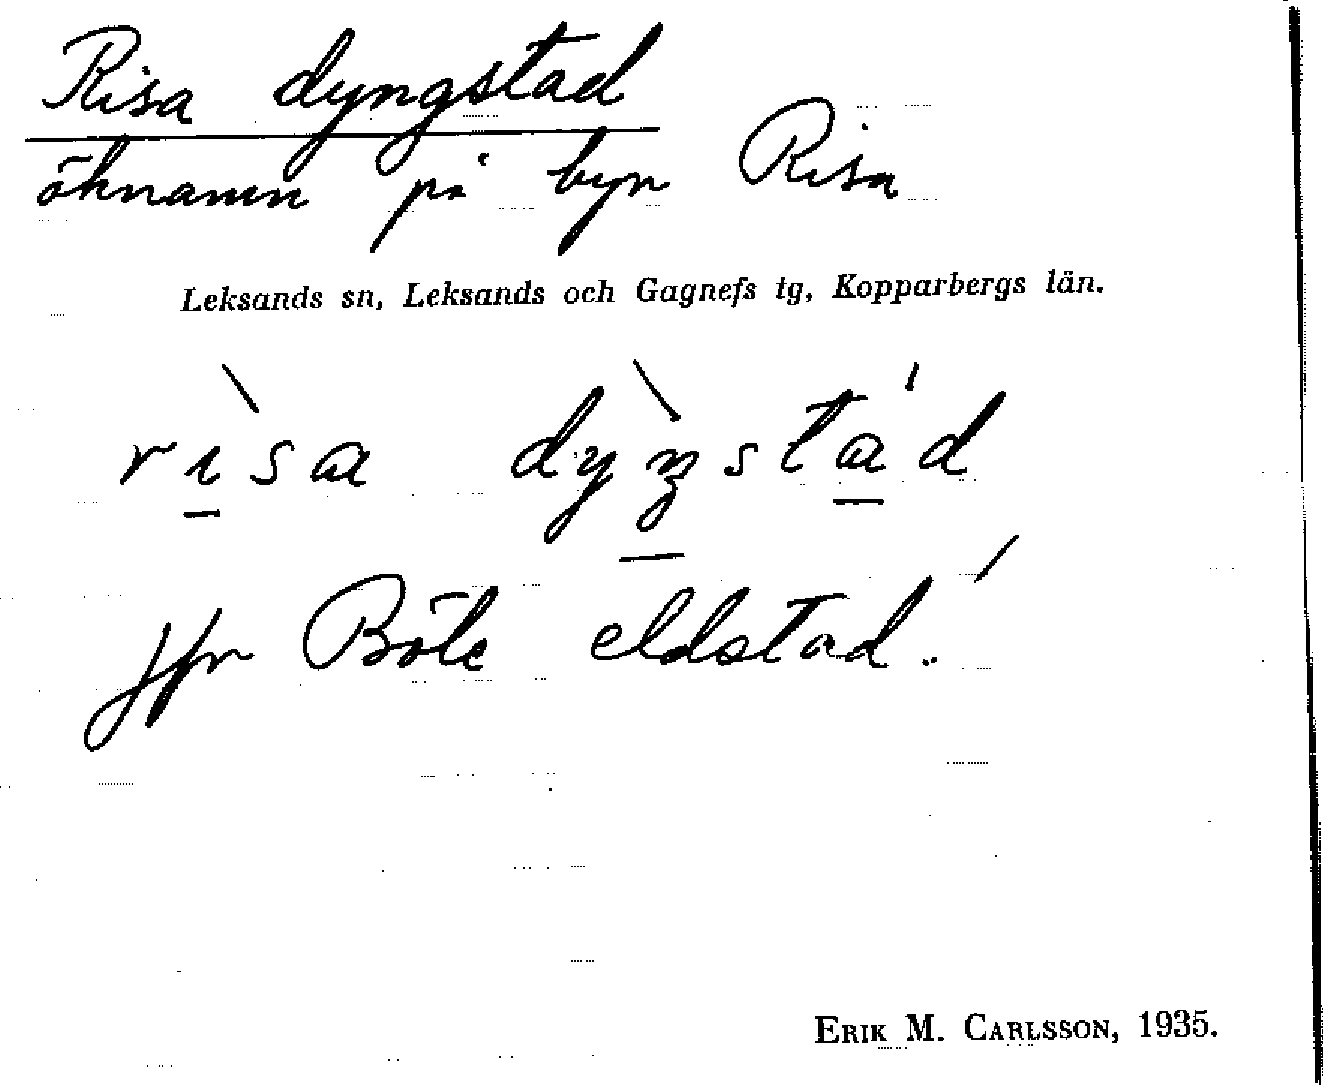 Risa dyngstad
öknamn på byn Risa
Leksands sn, Leksands och Gagnefs tg, Kopparbergs län.
rìsa dyŋ̀stád
jfr Böle eldstad.
ERIK M. CARLSSON, 1935.